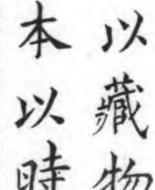 以藏物
本以時